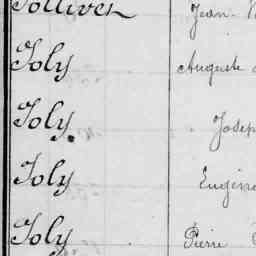 Jollivet Jean
Joly Auguste
Joly Joseph
Joly Eugène
Joly Pierre